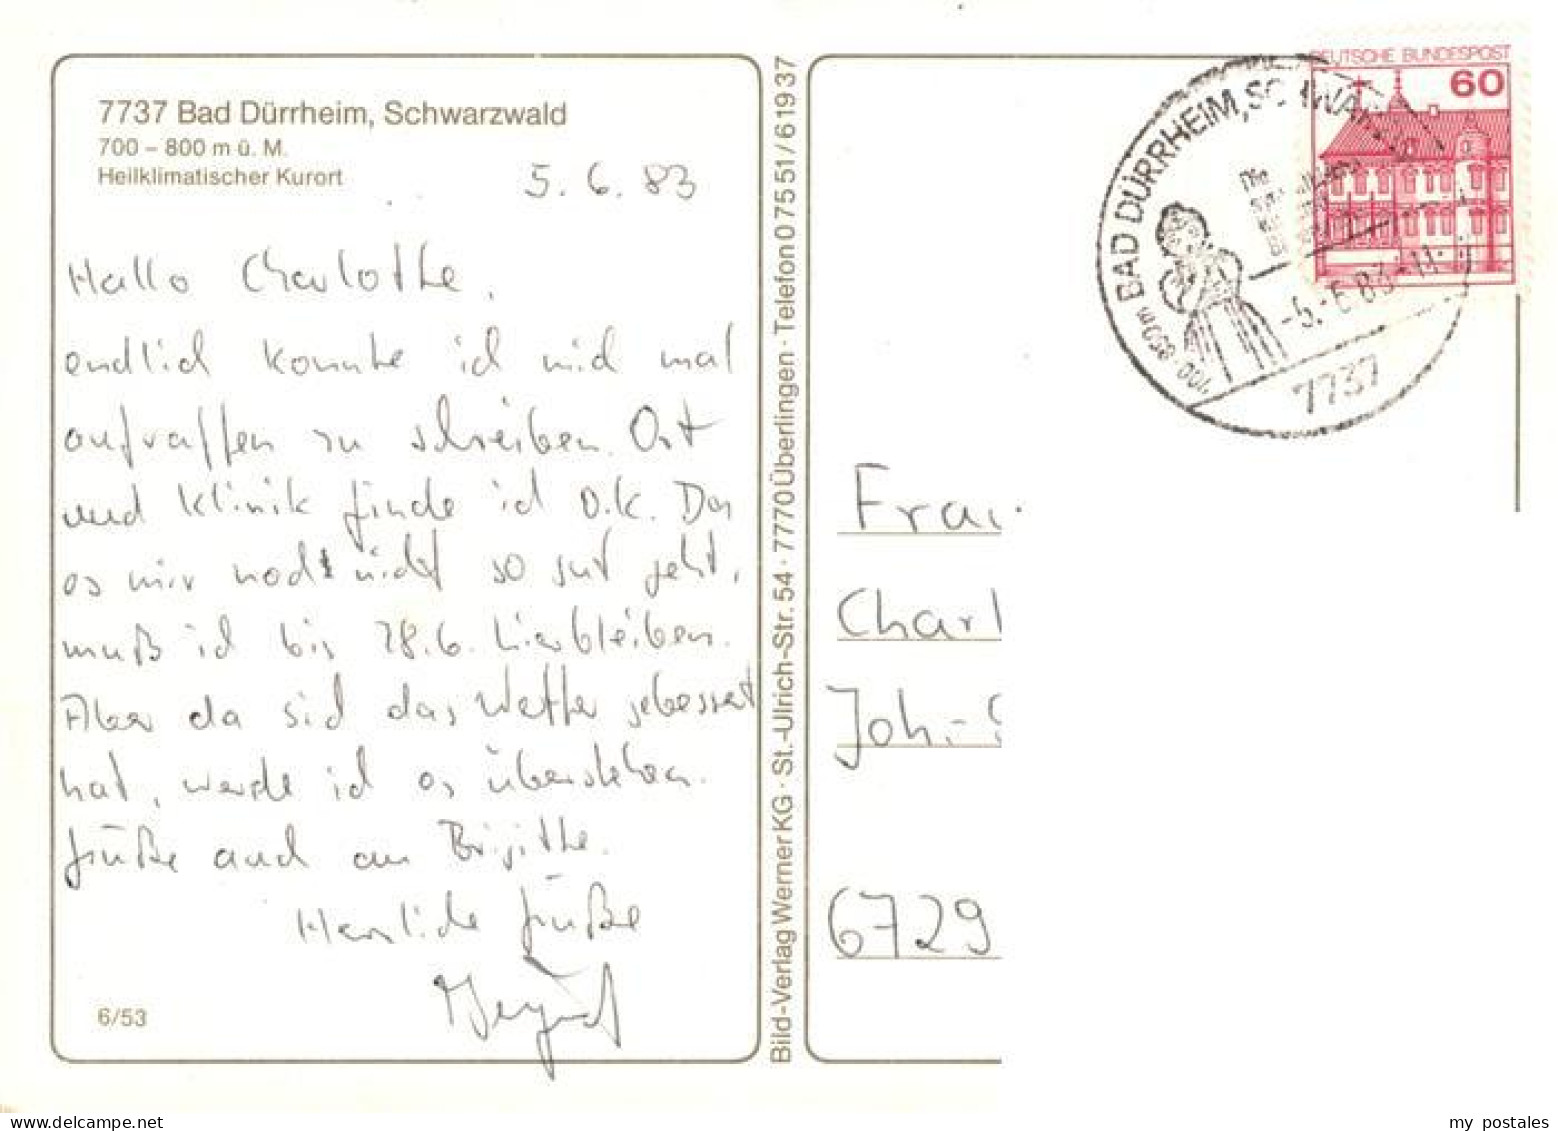 7737 Bad Dürrheim, Schwarzwald
700 – 800 m ü. M.
Heilklimatischer Kurort
5. 6. 83
Hallo Charlotte,
endlich konnte ich mich mal
aufraffen zu schreiben. Ort
und Klinik finde ich o.k. Da
es mir noch nicht so gut geht,
muß ich bis 28.6. hierbleiben.
Aber da sich das Wetter gebessert
hat, werde ich es überstehen.
Grüße auch an Brigitte.
Herzliche Grüße
6/53
Bild-Verlag Werner KG · St.-Ulrich-Str. 54 · 7770 Überlingen · Telefon 0 75 51 / 6 19 37
DEUTSCHE BUNDESPOST
60
700-850m BAD DÜRRHEIM, SCHWARZW
Die
-5.-6.83-11
7737
Frau
Charl
Joh.-
6729
my postales